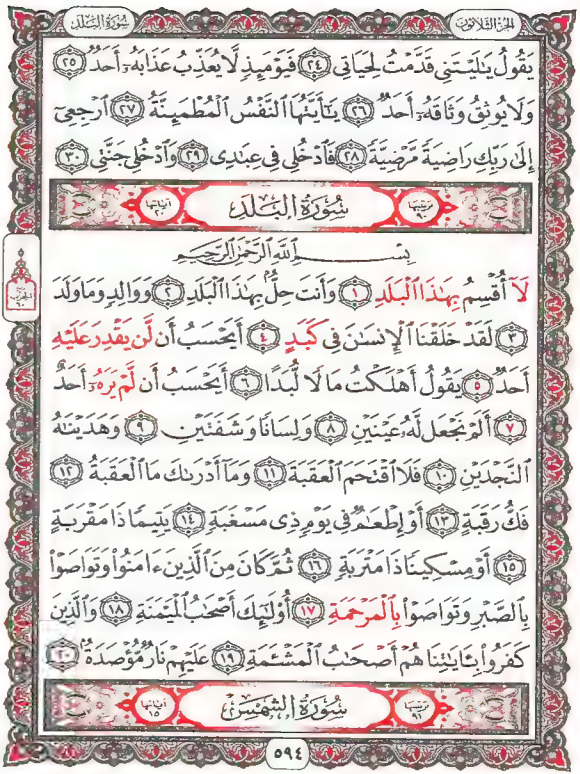 الجزء الثلاثون
سورة البلد
يَقُولُ يَٰلَيْتَنِى قَدَّمْتُ لِحَيَاتِى ٢٤ فَيَوْمَئِذٍ لَّا يُعَذِّبُ عَذَابَهُۥٓ أَحَدٌ ٢٥
وَلَا يُوثِقُ وَثَاقَهُۥٓ أَحَدٌ ٢٦ يَٰٓأَيَّتُهَا ٱلنَّفْسُ ٱلْمُطْمَئِنَّةُ ٢٧ ٱرْجِعِىٓ
إِلَىٰ رَبِّكِ رَاضِيَةً مَّرْضِيَّةً ٢٨ فَٱدْخُلِى فِى عِبَٰدِى ٢٩ وَٱدْخُلِى جَنَّتِى ٣٠
ترتيبها ٩٠ سُورَةُ البَلَدِ آياتها ٢٠
بِسْمِ ٱللَّهِ ٱلرَّحْمَٰنِ ٱلرَّحِيمِ
لَآ أُقْسِمُ بِهَٰذَا ٱلْبَلَدِ ١ وَأَنتَ حِلٌّۢ بِهَٰذَا ٱلْبَلَدِ ٢ وَوَالِدٍ وَمَا وَلَدَ
٣ لَقَدْ خَلَقْنَا ٱلْإِنسَٰنَ فِى كَبَدٍ ٤ أَيَحْسَبُ أَن لَّن يَقْدِرَ عَلَيْهِ
أَحَدٌ ٥ يَقُولُ أَهْلَكْتُ مَالًا لُّبَدًا ٦ أَيَحْسَبُ أَن لَّمْ يَرَهُۥٓ أَحَدٌ
٧ أَلَمْ نَجْعَل لَّهُۥ عَيْنَيْنِ ٨ وَلِسَانًا وَشَفَتَيْنِ ٩ وَهَدَيْنَٰهُ
ٱلنَّجْدَيْنِ ١٠ فَلَا ٱقْتَحَمَ ٱلْعَقَبَةَ ١١ وَمَآ أَدْرَىٰكَ مَا ٱلْعَقَبَةُ ١٢
فَكُّ رَقَبَةٍ ١٣ أَوْ إِطْعَٰمٌ فِى يَوْمٍ ذِى مَسْغَبَةٍ ١٤ يَتِيمًا ذَا مَقْرَبَةٍ
١٥ أَوْ مِسْكِينًا ذَا مَتْرَبَةٍ ١٦ ثُمَّ كَانَ مِنَ ٱلَّذِينَ ءَامَنُوا۟ وَتَوَاصَوْا۟
بِٱلصَّبْرِ وَتَوَاصَوْا۟ بِٱلْمَرْحَمَةِ ١٧ أُو۟لَٰٓئِكَ أَصْحَٰبُ ٱلْمَيْمَنَةِ ١٨ وَٱلَّذِينَ
كَفَرُوا۟ بِـَٔايَٰتِنَا هُمْ أَصْحَٰبُ ٱلْمَشْـَٔمَةِ ١٩ عَلَيْهِمْ نَارٌ مُّؤْصَدَةٌۢ ٢٠
ترتيبها ٩١ سُورَةُ الشَّمْسِ آياتها ١٥
٥٩٤